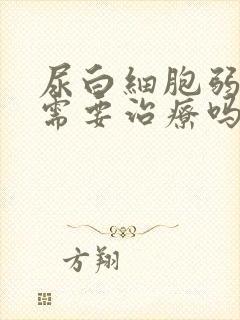 尿白細胞弱
需要治療嗎
方翔